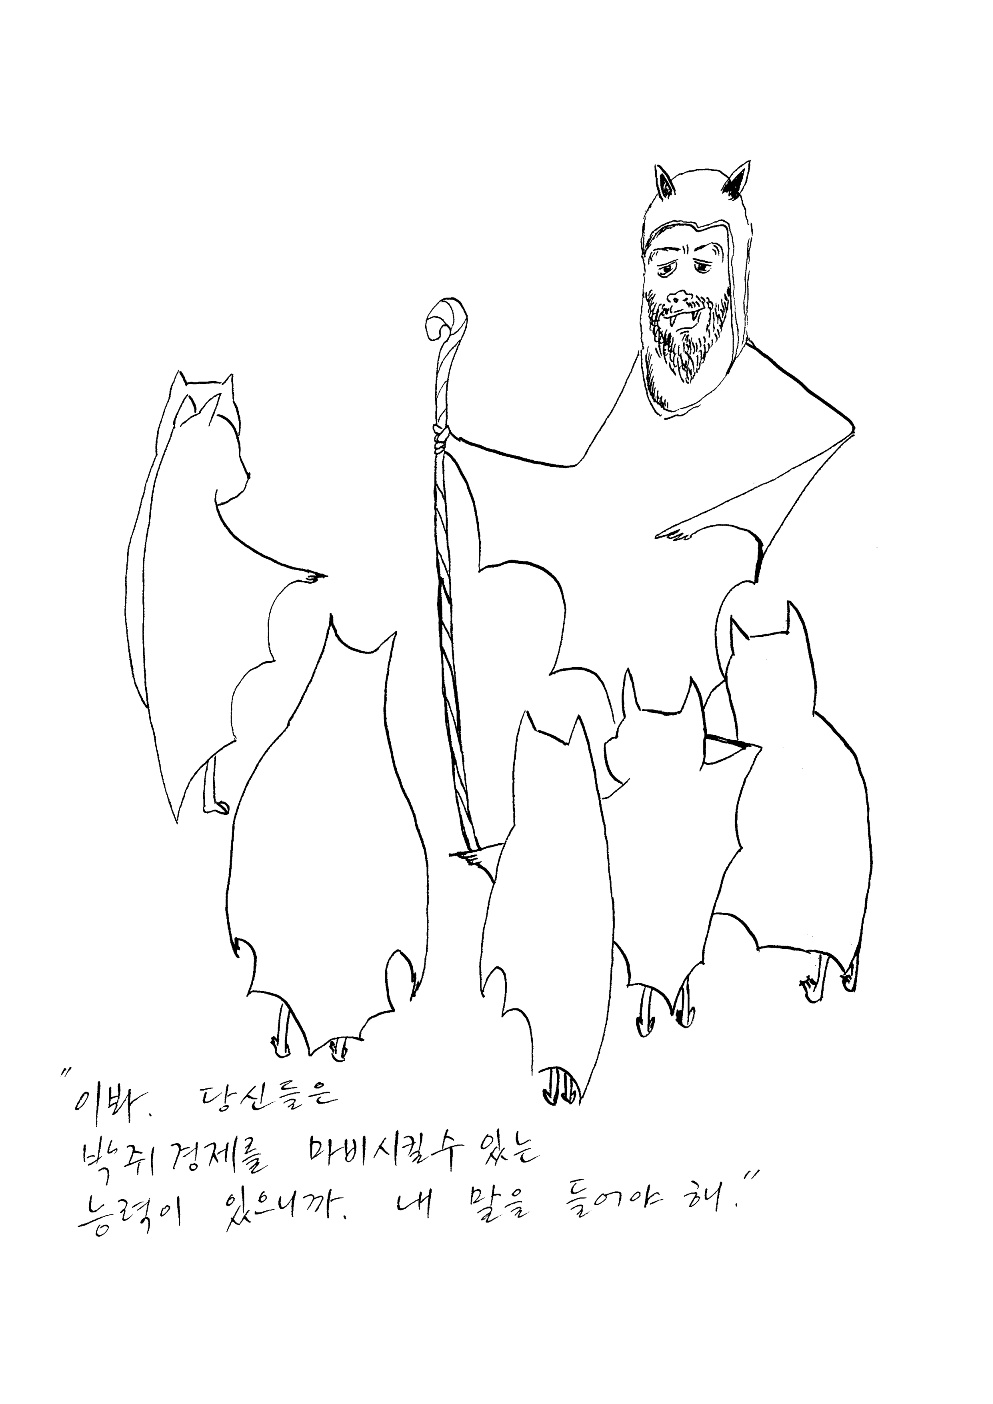 "이봐. 당신들은
박쥐 경제를 마비시킬수 있는
능력이 있으니까. 내 말을 들어야 해."